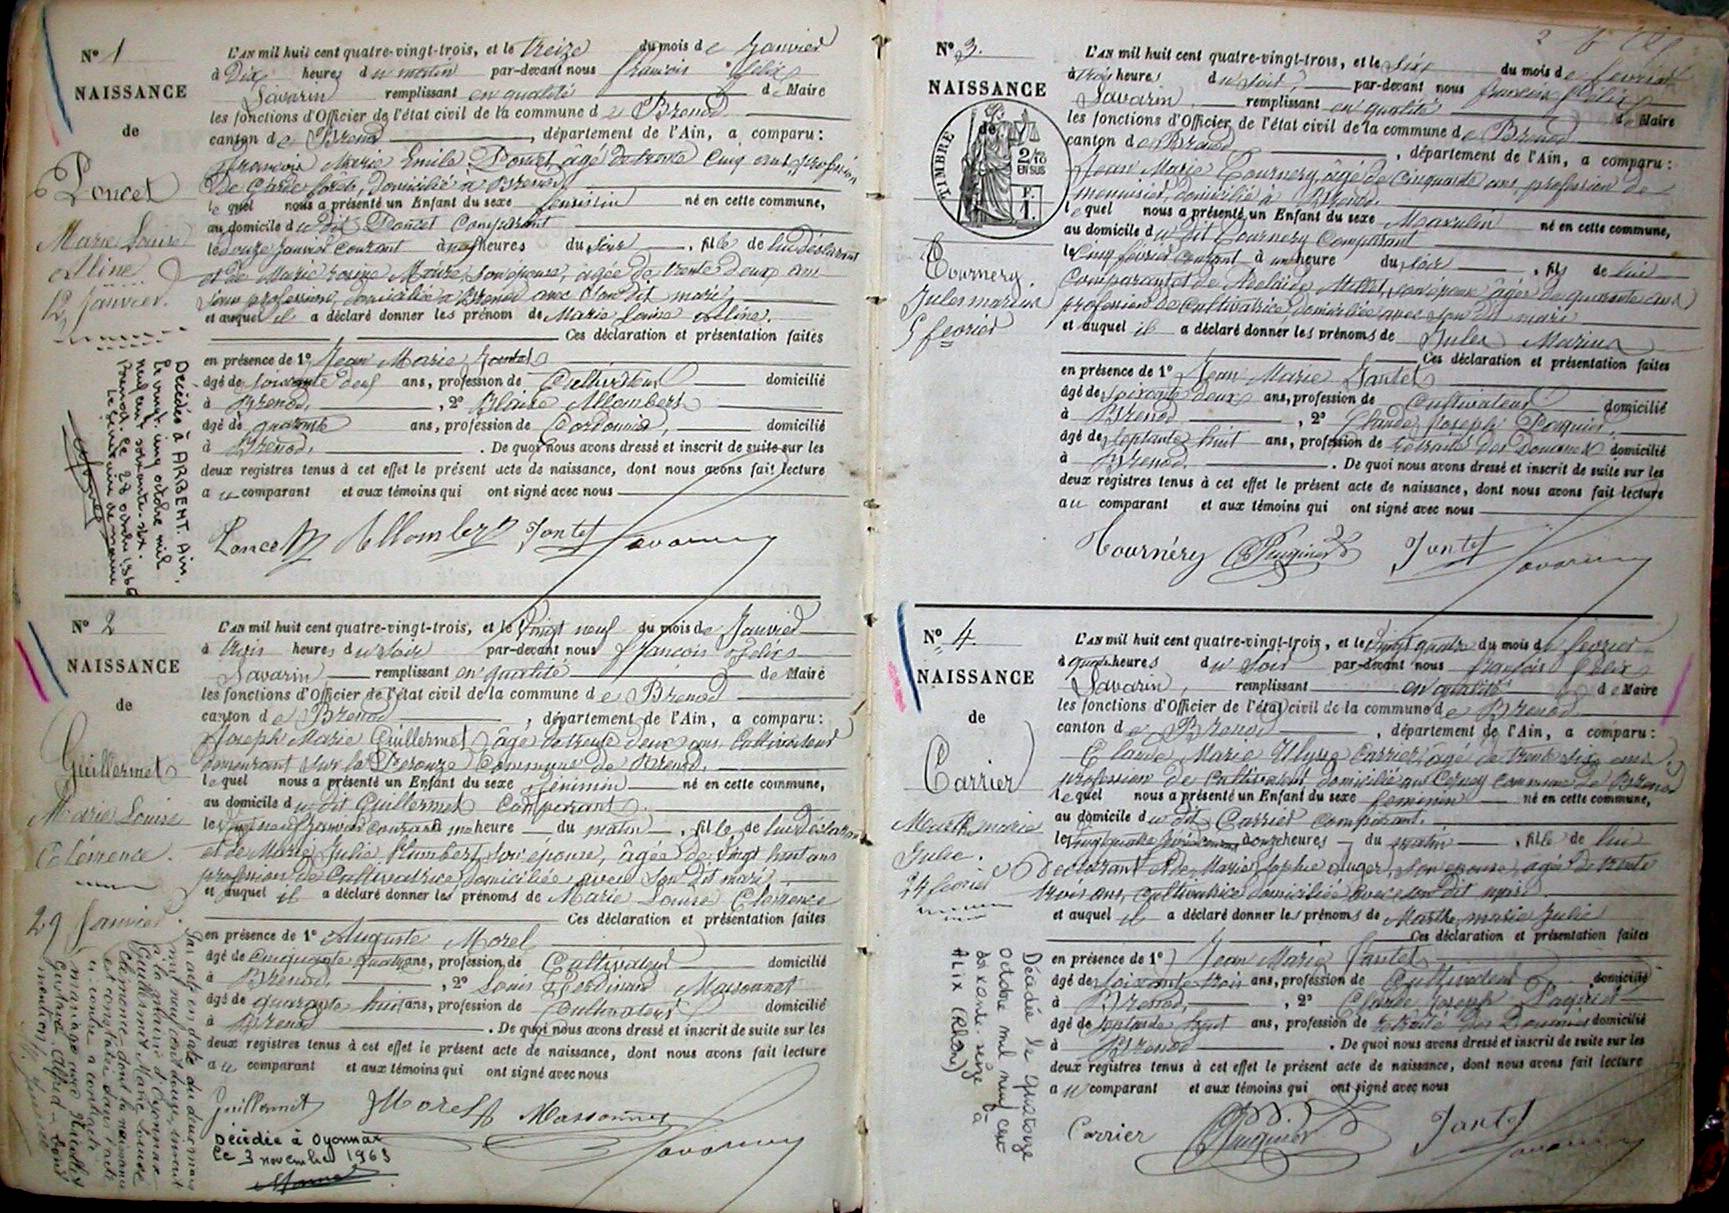 N° 1
NAISSANCE
de
Poncet
Marie Louise
Aline
12 Janvier
L'AN mil huit cent quatre-vingt-trois, et le treize du mois de Janvier
à Dix heures du matin par-devant nous françois félix
Savarin remplissant en qualité de Maire
les fonctions d'Officier de l'état civil de la commune de Brenod
canton de Brenod, département de l'Ain, a comparu:
françois Marie Emile Poncet âgé de trente cinq ans, profession
De Garde forêts, domicilié à Brenod,
lequel nous a présenté un Enfant du sexe féminin né en cette commune,
au domicile du dit Poncet Comparant
le douze Janvier courant à heures du soir, fille de lui déclarant
et de Marie Louise son épouse, âgée de trente deux ans
sans profession, domiciliée à Brenod avec son dit mari
et auquel il a déclaré donner les prénom de Marie Louise Aline.
Ces déclaration et présentation faites
en présence de 1° Jean Marie Jantet
âgé de soixante deux ans, profession de Cultivateur domicilié
à Brenod, 2° Blaise Allombert
âgé de quarante ans, profession de Cordonnier, domicilié
à Brenod. De quoi nous avons dressé et inscrit de suite sur les
deux registres tenus à cet effet le présent acte de naissance, dont nous avons fait lecture
au comparant et aux témoins qui ont signé avec nous
Poncet Allombert Jantet Savarin
Décédée à ARBENT, Ain,
le vingt cinq octobre mil
neuf cent soixante-six.
Brenod, le 28 octobre 1966
Le Secrétaire de mairie
N° 2
NAISSANCE
de
Guillermet
Marie Louise
Clémence.
29 Janvier.
L'AN mil huit cent quatre-vingt-trois, et le Vingt neuf du mois de Janvier
à trois heures du soir par-devant nous françois félix
Savarin remplissant en qualité de Maire
les fonctions d'Officier de l'état civil de la commune de Brenod
canton de Brenod, département de l'Ain, a comparu:
Joseph Marie Guillermet âgé de trente deux ans Cultivateur
demeurant sur la Commune de Brenod.
lequel nous a présenté un Enfant du sexe féminin né en cette commune,
au domicile du dit Guillermet Comparant
le vingt neuf Janvier courant à une heure du matin, fille de lui Déclarant
et de Marie Julie Humbert, son épouse, âgée de Vingt huit ans
profession de Cultivatrice, domiciliée avec son dit mari
et auquel il a déclaré donner les prénoms de Marie Louise Clémence
Ces déclaration et présentation faites
en présence de 1° Auguste Morel
âgé de Cinquante quatre ans, profession de Cultivateur domicilié
à Brenod, 2° Louis Ferdinand Massonnet
âgé de quarante huit ans, profession de Cultivateur domicilié
à Brenod. De quoi nous avons dressé et inscrit de suite sur les
deux registres tenus à cet effet le présent acte de naissance, dont nous avons fait lecture
au comparant et aux témoins qui ont signé avec nous
Guillermet Morel Massonnet
Savarin
Décédée à Oyonnax
le 3 novembre 1963
Par acte en date du deux mars
mil neuf cent douze, inscrit
à la mairie d'Oyonnax
Guillermet Marie Louise
Clémence dont la naissance
est constatée dans l'acte
ci-contre a contracté
mariage avec
Gustave Alfred
mention
N° 3.
NAISSANCE
de
TIMBRE
2/10
EN SUS
F.
1.
Tournery.
Jules marius
5 fevrier
L'AN mil huit cent quatre-vingt-trois, et le six du mois de fevrier
à trois heures du soir, par-devant nous françois félix
Savarin, remplissant en qualité de Maire
les fonctions d'Officier de l'état civil de la commune de Brenod
canton de Brenod, département de l'Ain, a comparu:
Jean Marie Tournery, âgé de Cinquante ans profession de
menuisier, domicilié à Brenod.
lequel nous a présenté un Enfant du sexe Masculin né en cette commune,
au domicile du dit Tournery Comparant
le Cinq février Courant à une heure du soir, fils de lui
Comparant et de Adelaïde son épouse âgée de quarante ans
profession de Cultivatrice domiciliée avec son dit mari
et auquel il a déclaré donner les prénoms de Jules Marius
Ces déclaration et présentation faites
en présence de 1° Jean Marie Jantet
âgé de soixante deux ans, profession de Cultivateur domicilié
à Brenod, 2° Claude Joseph
âgé de septante huit ans, profession de retraité des Douanes domicilié
à Brenod. De quoi nous avons dressé et inscrit de suite sur les
deux registres tenus à cet effet le présent acte de naissance, dont nous avons fait lecture
au comparant et aux témoins qui ont signé avec nous
Tournéry Jantet Savarin
N° 4.
NAISSANCE
de
Carrier
Marthe marie
Julie.
24 fevrier
L'AN mil huit cent quatre-vingt-trois, et le vingt quatre du mois de fevrier
à quatre heures du soir par-devant nous françois félix
Savarin, remplissant en qualité de Maire
les fonctions d'Officier de l'état civil de la commune de Brenod
canton de Brenod, département de l'Ain, a comparu:
Claude Marie Ulysse Carrier, âgé de trente six ans
profession de Cultivateur domicilié au commune de Brenod
lequel nous a présenté un Enfant du sexe féminin né en cette commune,
au domicile du dit Carrier comparant.
le vingt quatre heures du matin, fille de lui
Déclarant et de Marie Sophie Auger, son épouse, âgée de trente
trois ans, cultivatrice domiciliée avec son dit mari
et auquel il a déclaré donner les prénoms de Marthe marie Julie
Ces déclaration et présentation faites
en présence de 1° Jean Marie Jantet
âgé de soixante trois ans, profession de Cultivateur domicilié
à Brenod, 2° Claude Joseph
âgé de septante huit ans, profession de retraité des Douanes domicilié
à Brenod. De quoi nous avons dressé et inscrit de suite sur les
deux registres tenus à cet effet le présent acte de naissance, dont nous avons fait lecture
au comparant et aux témoins qui ont signé avec nous
Carrier Jantet Savarin
Décédée le quatorze
Octobre mil neuf cent
soixante-seize à
ALIX (Rhône)